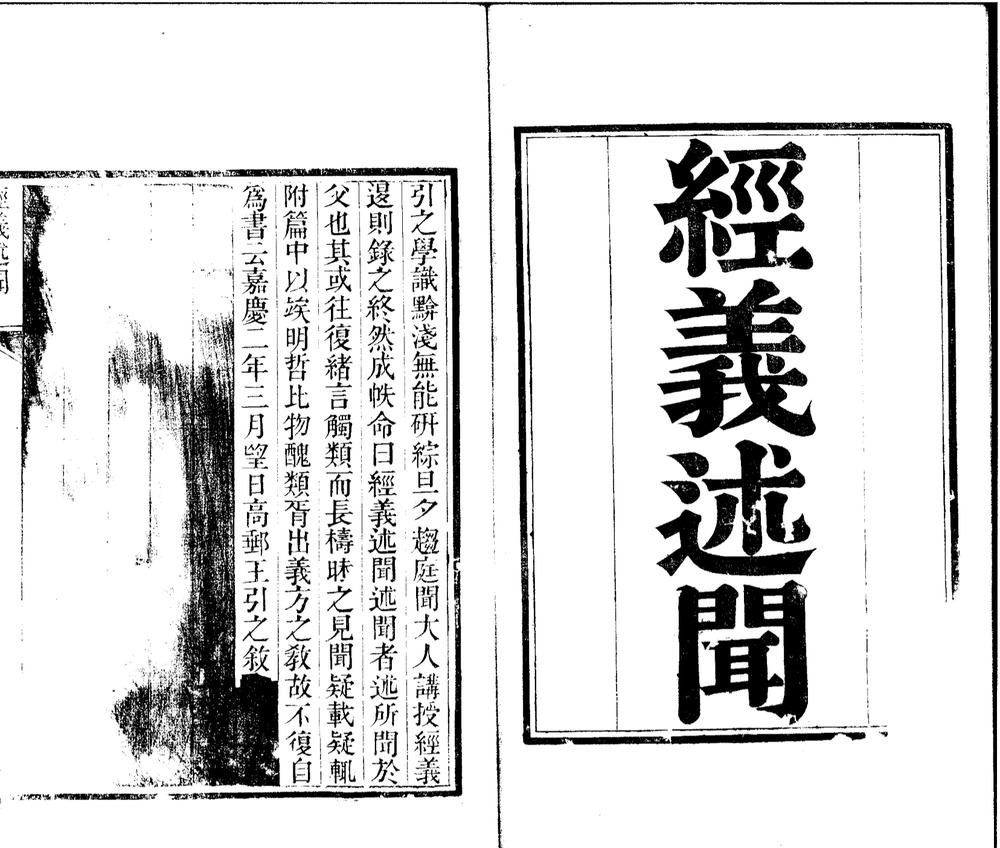 經義述聞
引之學識黭淺無能硏綜旦夕趨庭聞大人講授經義
退則錄之終然成帙命曰經義述聞述聞者述所聞於
父也其或往復緒言觸類而長檮昧之見聞疑載疑輒
附篇中以竢明哲比物醜類胥出義方之敎故不復自
爲書云嘉慶二年三月望日高郵王引之敘
經義述聞